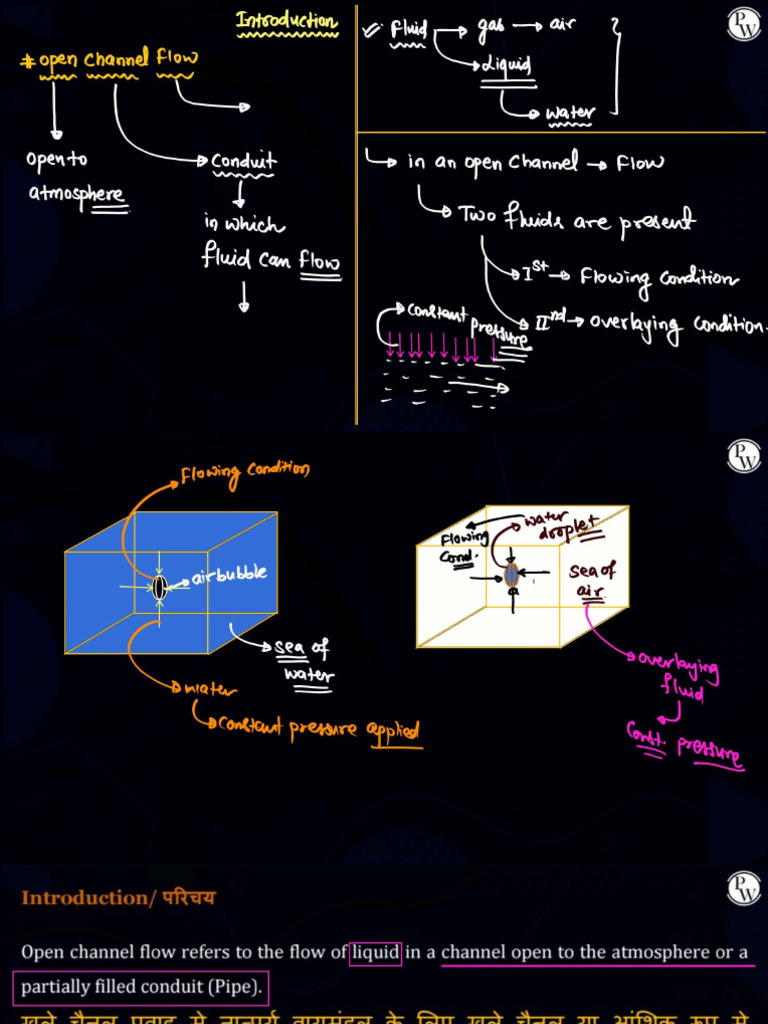 Introduction
# open channel flow
open to
atmosphere
Conduit
in which
fluid can flow
Fluid
gas → air
Liquid
water
in an open channel → Flow
Two fluids are present
Ist → Flowing condition
IInd → overlaying condition.
constant
pressure
PW
Flowing condition
airbubble
sea of
water
water
constant pressure applied
PW
Flowing
Cond.
water
droplet
sea of
air.
overlaying
fluid
Const. pressure
PW
Introduction/ परिचय
Open channel flow refers to the flow of liquid in a channel open to the atmosphere or a
partially filled conduit (Pipe).
खुले चैनल प्रवाह से तात्पर्य वायुमंडल के लिए खुले चैनल या आंशिक रूप से